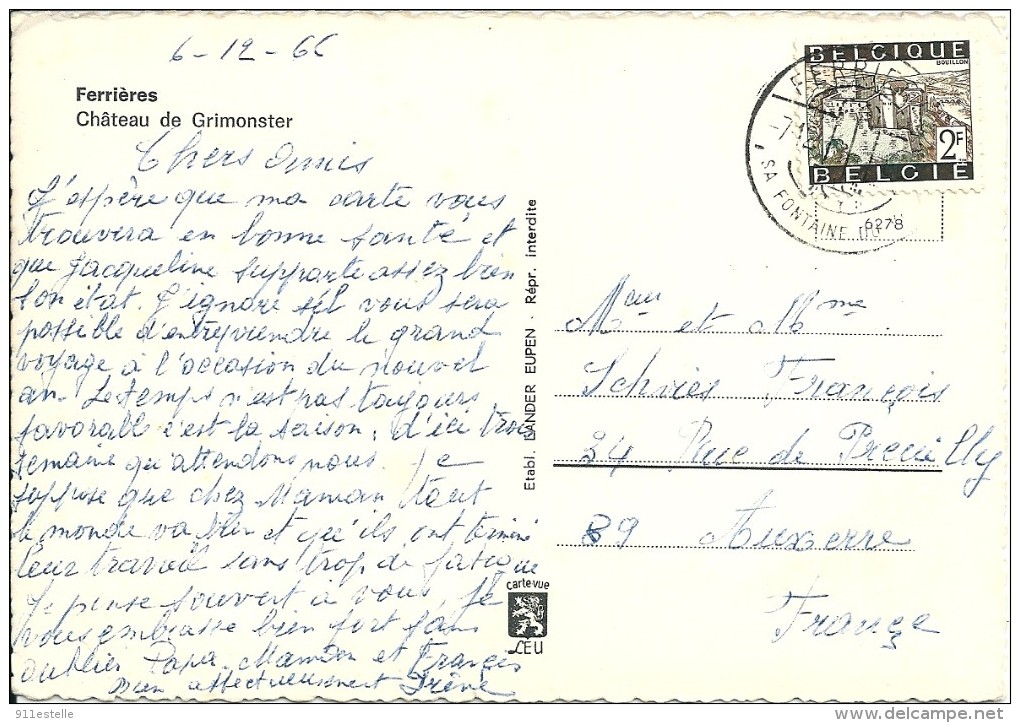 6-12-66
Ferrières
Château de Grimonster
Chers Amis
J'espère que ma carte vous
trouvera en bonne santé et
que Jacqueline supporte assez bien
son état. J'ignore s'il vous sera
possible d'entreprendre le grand
voyage à l'occasion du nouvel
an. Le temps n'est pas toujours
favorable c'est la saison, d'ici trois
semaine qu'attendons nous. Je
suppose que chez Maman tout
le monde va bien et qu'ils ont terminé
leur travail sans trop de fatigue
Je pense souvent à vous. Je
vous embrasse bien fort sans
oublier Papa, Maman et Francis
Bien affectueusement Irène
Etabl. LANDER EUPEN - Répr. interdite
carte-vue
LEU
BELGIQUE
BOUILLON
2F
BELGIË
FERRIE
SA FONTAINE DU
6278
Mr et Mme
Schviès François
24 Rue de Preuilly
89 Auxerre
France
911estelle
delcampe.net